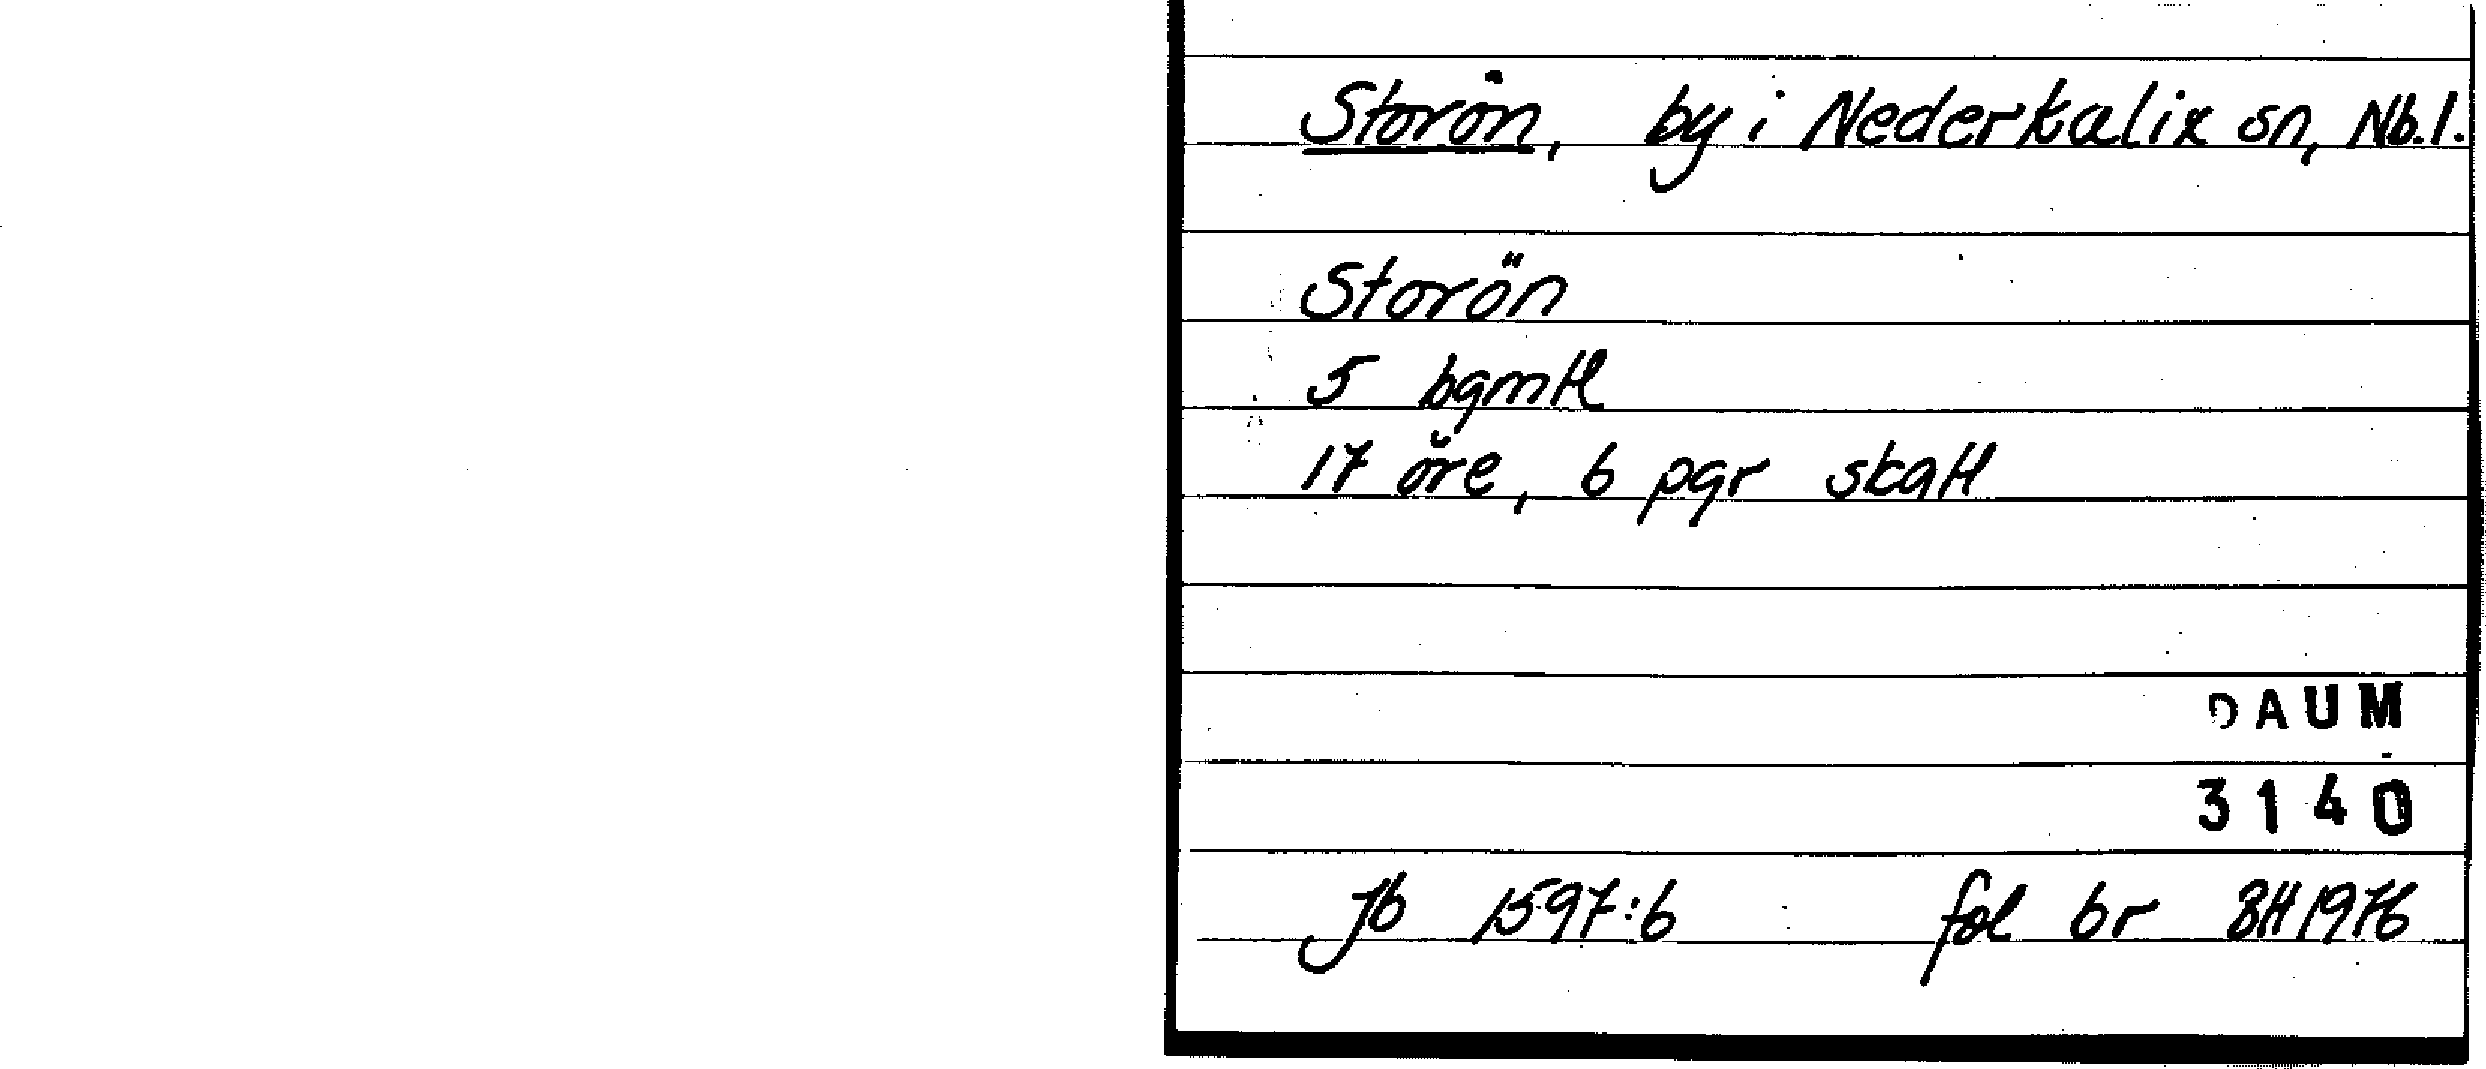 Storön, by i Nederkalix sn, Nb.l.
Storön
5 bgmtl
17 öre, 6 pgr skatt
DAUM
3140
Jb 1597:6 fol br BH 1976